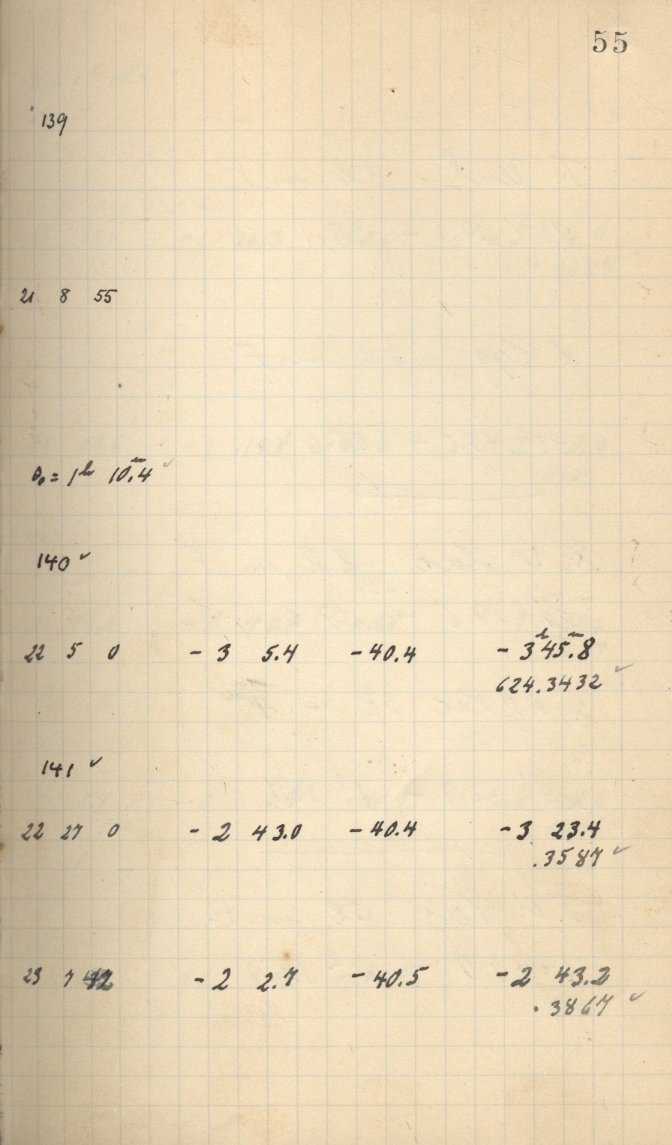 55
139
21 8 55
θ₀ = 1ʰ 10ᵐ.4 ✓
140 ✓
22 5 0 - 3 5.4 - 40.4 - 3ʰ 45ᵐ.8
624.3432 ✓
141 ✓
22 27 0 - 2 43.0 - 40.4 - 3 23.4
.3587 ✓
23 7 42 - 2 2.7 - 40.5 - 2 43.2
.3867 ✓